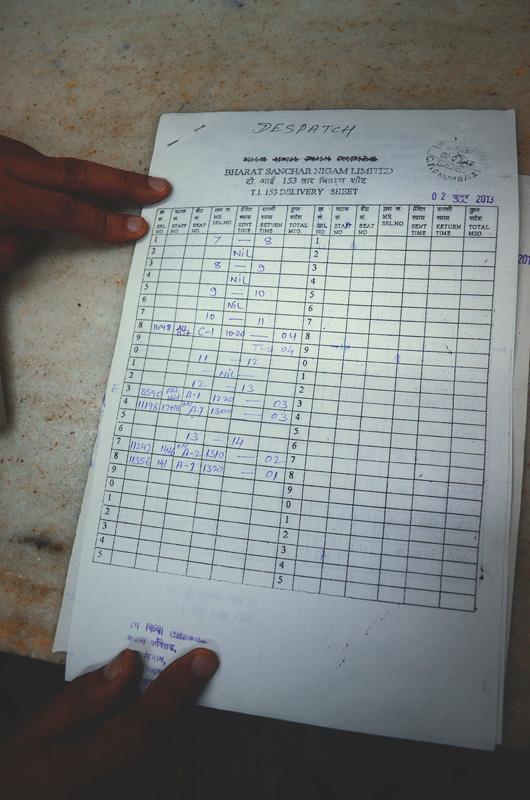 DESPATCH
BHARAT SANCHAR NIGAM LIMITED
टी. आई. 153 तार वितरण शीट
T.I. 153 DELIVERY SHEET
0 2 2013
क्र. सं. स्टाफ सं. बीट सं. क्रम सं. प्रेषित समय वापसी समय कुल संदेश क्र. सं. स्टाफ सं. बीट सं. क्रम सं. प्रेषित समय वापसी समय कुल संदेश
SRL NO STAFF NO BEAT NO MR SRL.NO SENT TIME RETURN TIME TOTAL MSG. SRL NO STAFF NO BEAT NO MR SRL.NO SENT TIME RETURN TIME TOTAL MSG.
1 7 — 8 1
2 NiL 2
3 8 — 9 3
4 NiL 4
5 9 — 10 5
6 NiL 6
7 10 — 11 7
8 C-1 10-20 — 04 8
9 04 9
0 11 — 12 0
1 — NiL — 1
2 12 — 13 2
3 8590 B-1 1220 — 03 3
4 11198 A-7 1300 — 03 4
5 5
6 13 — 14 6
7 11247 A-2 1310 — 02 7
8 11356 141 1320 — 01 8
9 9
0 0
1 1
2 2
3 3
4 4
5 5